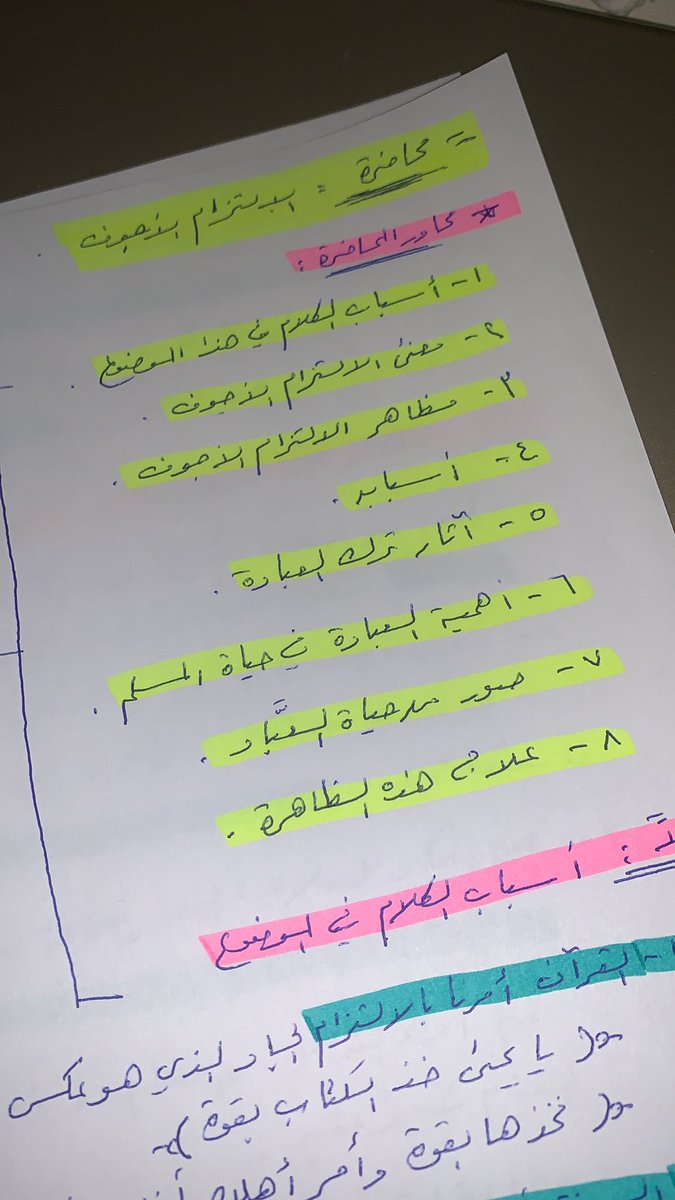 - محاضرة : الالتزام الأجوف .
* محاور المحاضرة :
١- أسباب الكلام في هذا الموضوع .
٢- معنى الالتزام الأجوف .
٣- مظاهر الالتزام الأجوف .
٤- أسبابه .
٥- آثار ترك العبادة .
٦- أهمية العبادة في حياة المسلم .
٧- صور من حياة العُبَّاد .
٨- علاج هذه الظاهرة .
: أسباب الكلام في الموضوع
- القرآن أمرنا بالالتزام الجاد الذي هو عكس
( يا يحيى خذ الكتاب بقوة )
( فخذها بقوة وأمر